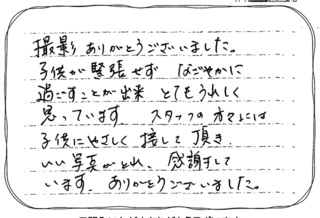 撮影 ありがとうございました。
子供が緊張せず なごやかに
過ごすことが出来 とてもうれしく
思っています。 スタッフの方々には
子供にやさしく 接して 頂き、
いい写真がとれ、感謝して
います。ありがとうございました。